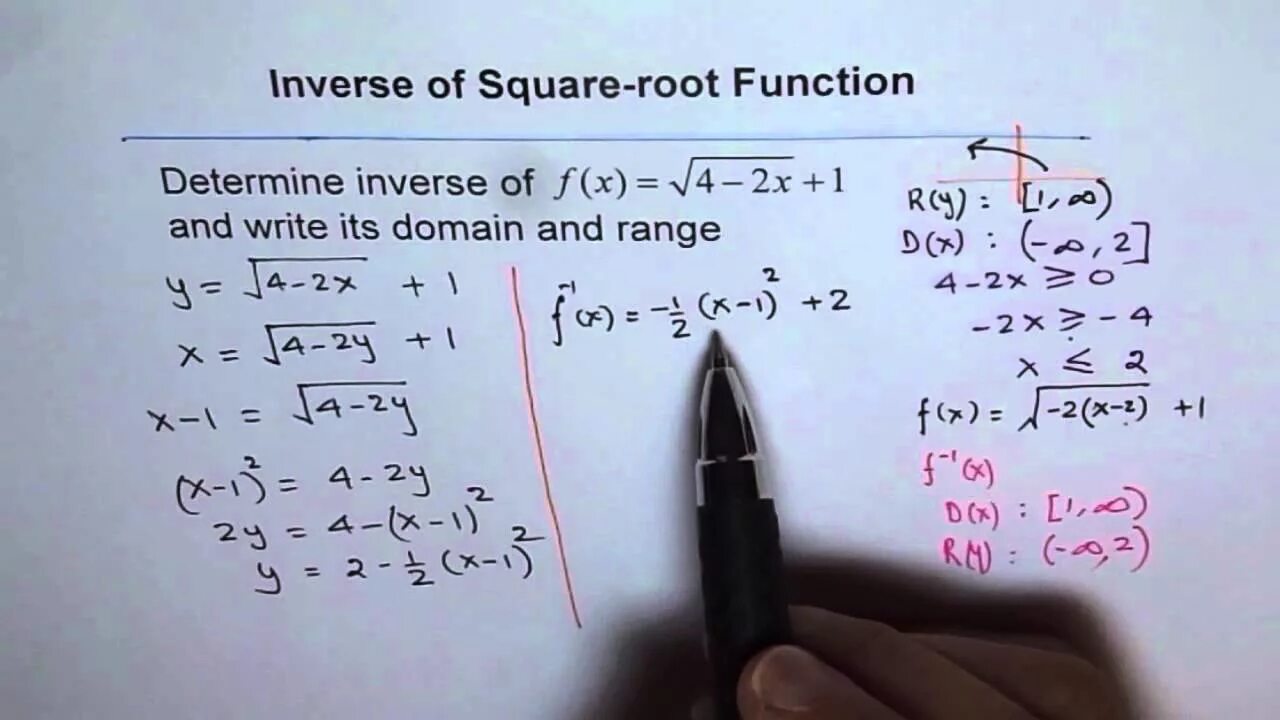 Inverse of Square-root Function
Determine inverse of f(x) = √(4 − 2x) + 1
and write its domain and range
y = √(4-2x) + 1
x = √(4-2y) + 1
x-1 = √(4-2y)
(x-1)² = 4-2y
2y = 4-(x-1)²
y = 2-½(x-1)²
f⁻¹(x) = -½(x-1)² +2
R(y) : [1,∞)
D(x) : (-∞,2]
4-2x ≥ 0
-2x ≥ -4
x ≤ 2
f(x) = √(-2(x-2)) +1
f⁻¹(x)
D(x) : [1,∞)
R(y) : (-∞,2)